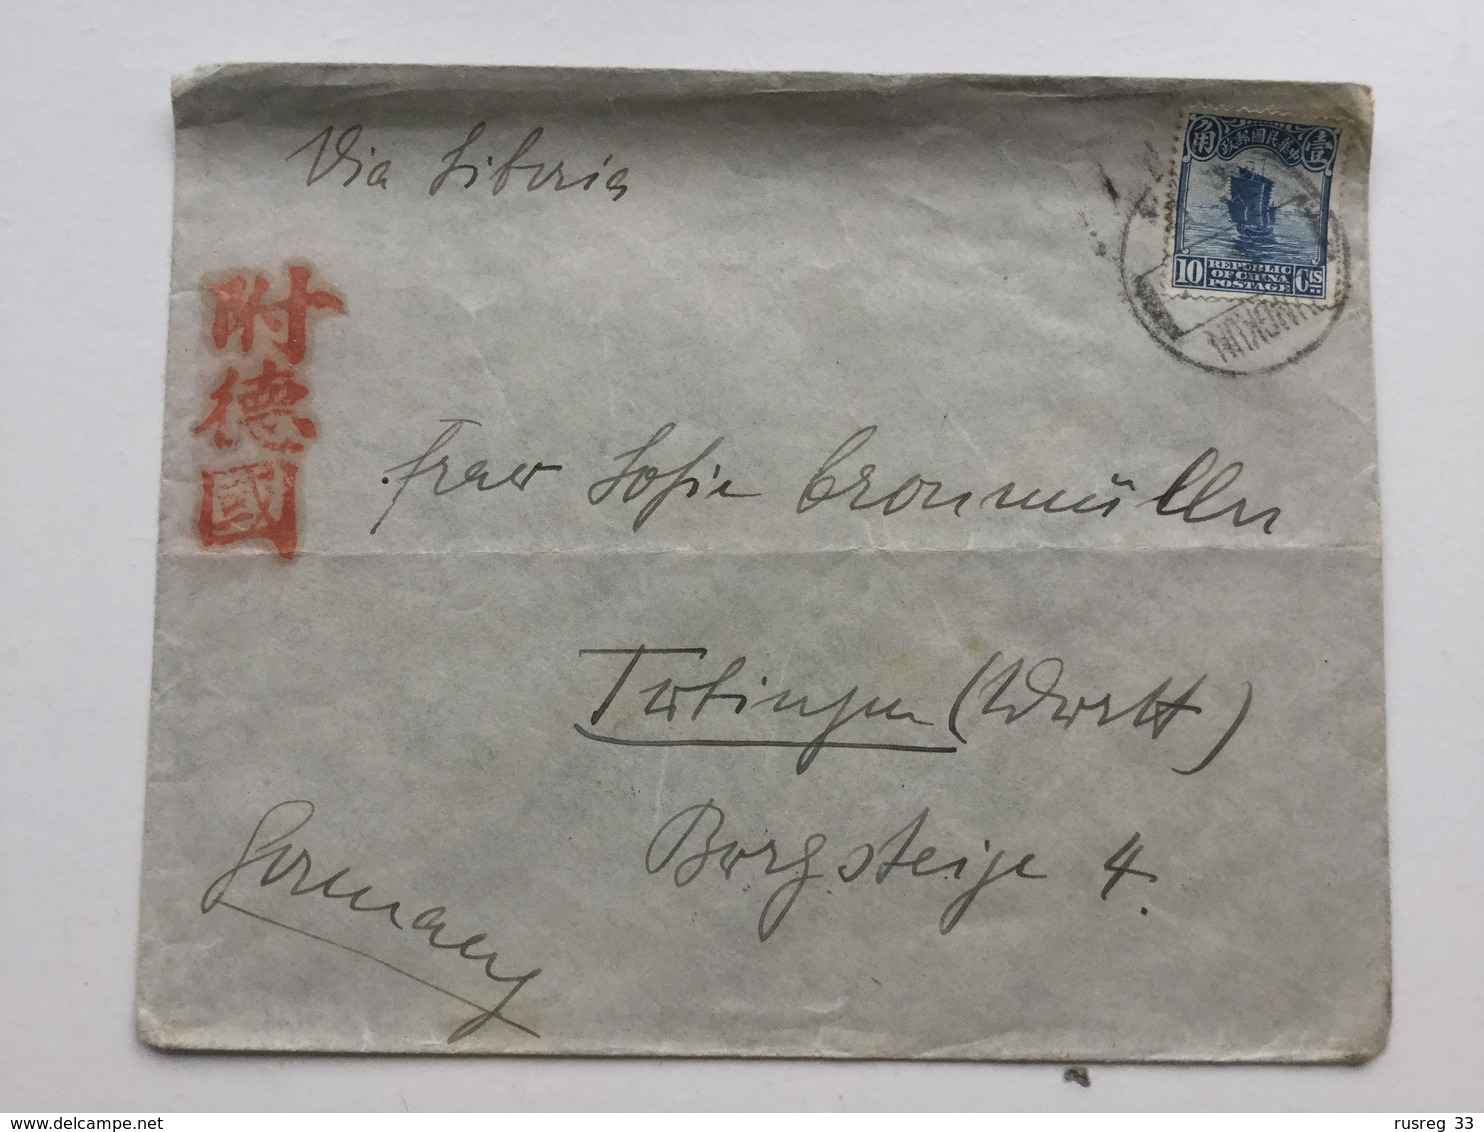 Via Siberia
角 中華民國郵政 壹
10 REPUBLIC OF CHINA POSTAGE Cts
附德國
Frau Sofie Cronmüller
Tübingen (Württ)
Burgsteige 4.
Germany
rusreg 33